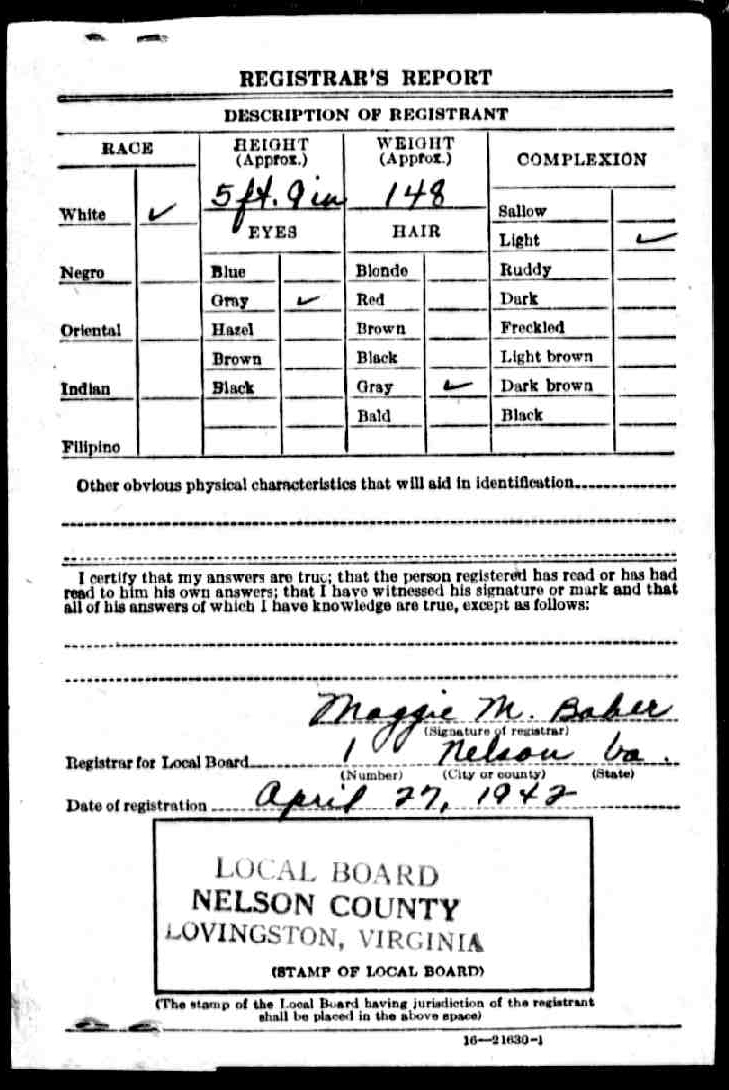 REGISTRAR'S REPORT
DESCRIPTION OF REGISTRANT
RACE
HEIGHT (Approx.)
WEIGHT (Approx.)
COMPLEXION
5 ft. 9 in
148
White ✓
EYES
HAIR
Sallow
Light ✓
Negro
Blue
Blonde
Ruddy
Gray ✓
Red
Dark
Oriental
Hazel
Brown
Freckled
Brown
Black
Light brown
Indian
Black
Gray ✓
Dark brown
Bald
Black
Filipino
Other obvious physical characteristics that will aid in identification
I certify that my answers are true; that the person registered has read or has had
read to him his own answers; that I have witnessed his signature or mark and that
all of his answers of which I have knowledge are true, except as follows:
Maggie M. Baber
(Signature of registrar)
Registrar for Local Board 1 Nelson Va.
(Number) (City or county) (State)
Date of registration April 27, 1942
LOCAL BOARD
NELSON COUNTY
LOVINGSTON, VIRGINIA
(STAMP OF LOCAL BOARD)
(The stamp of the Local Board having jurisdiction of the registrant
shall be placed in the above space)
16—21630-1